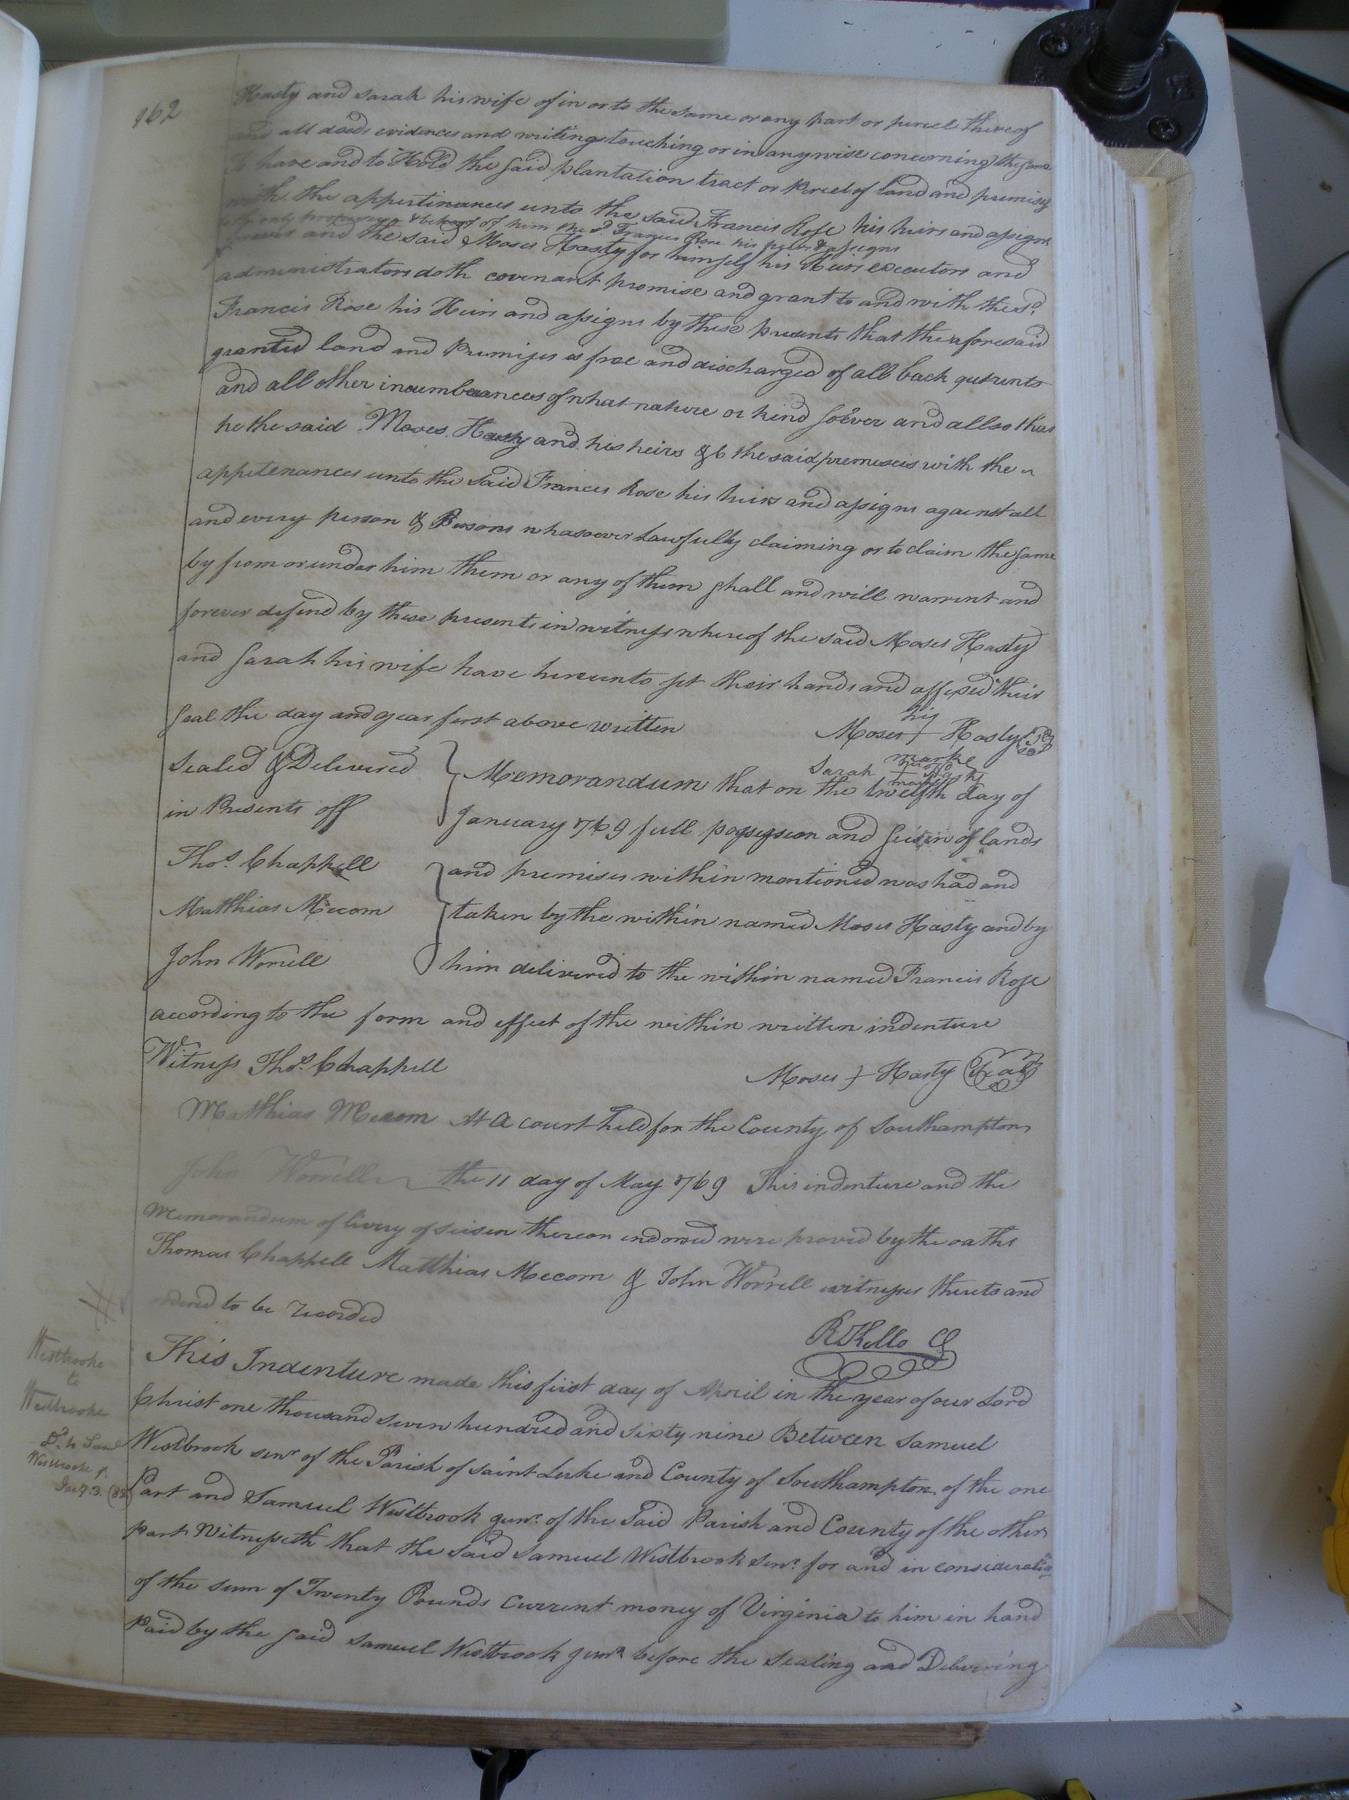 162
Hasty and Sarah his wife of in or to the same or any part or percel thereof
and all deeds evidences and writings touching or in anywise concerning the same
To have and to Hold the said plantation tract or percel of land and premises
with the appurtinances unto the said Francis Rose his heirs and assigns
to the only proper use & behoof of him the sd Francis Rose his heirs & assigns
forever and the said Moses Hasty for himself his Heirs executors and
administrators doth covenant promise and grant to and with the sd.
Francis Rose his Heirs and assigns by these presents that the aforesaid
granted land and Premises is free and discharged of all back quitrents
and all other incumberances of what nature or kind soever and allso that
he the said Moses Hasty and his heirs &c the said premeses with the
appetenances unto the said Francis Rose his heirs and assigns against all
and every person & Persons whasoever Lawfully claiming or to claim the same
by from or under him them or any of them shall and will warrent and
forever defend by these presents in witness whereof the said Moses Hasty
and Sarah his wife have hereunto set their hands and affixed their
Seal the day and year first above written
his
Moses + Hasty Seal
marke
Sarah + Hasty
Sealed & Delivered
in Presents off
Thos. Chappell
Matthias Mecom
John Worrell
Memorandum that on the twelfth day of
January 1769 full possession and Seisin of lands
and premises within mentioned was had and
taken by the within named Moses Hasty and by
him delivered to the within named Francis Rose
according to the form and effect of the within written indenture
Witness Thos. Chappell
Moses + Hasty Seal
Matthias Mecom At A court held for the County of Southampton
John Worrell the 11 day of May 1769 This indenture and the
memorandum of livery of seisen thereon endorsed were proved by the oaths
Thomas Chappell Matthias Mecom & John Worrell witnesses thereto and
ordered to be recorded
R Kello C
Westbrooke
to
Westbrooke
This Indenture made this first day of April in the year of our Lord
Christ one thousand seven hundred and sixty nine Between Samuel
Westbrook senr. of the Parish of saint Luke and County of Southampton of the one
Part and Samuel Westbrook junr. of the said Parish and County of the other
part Witnesseth that the said Samuel Westbrook Senr. for and in consideration
of the sum of Twenty Pounds Current money of Virginia to him in hand
Paid by the said Samuel Westbrook junr. before the Sealing and Delivering